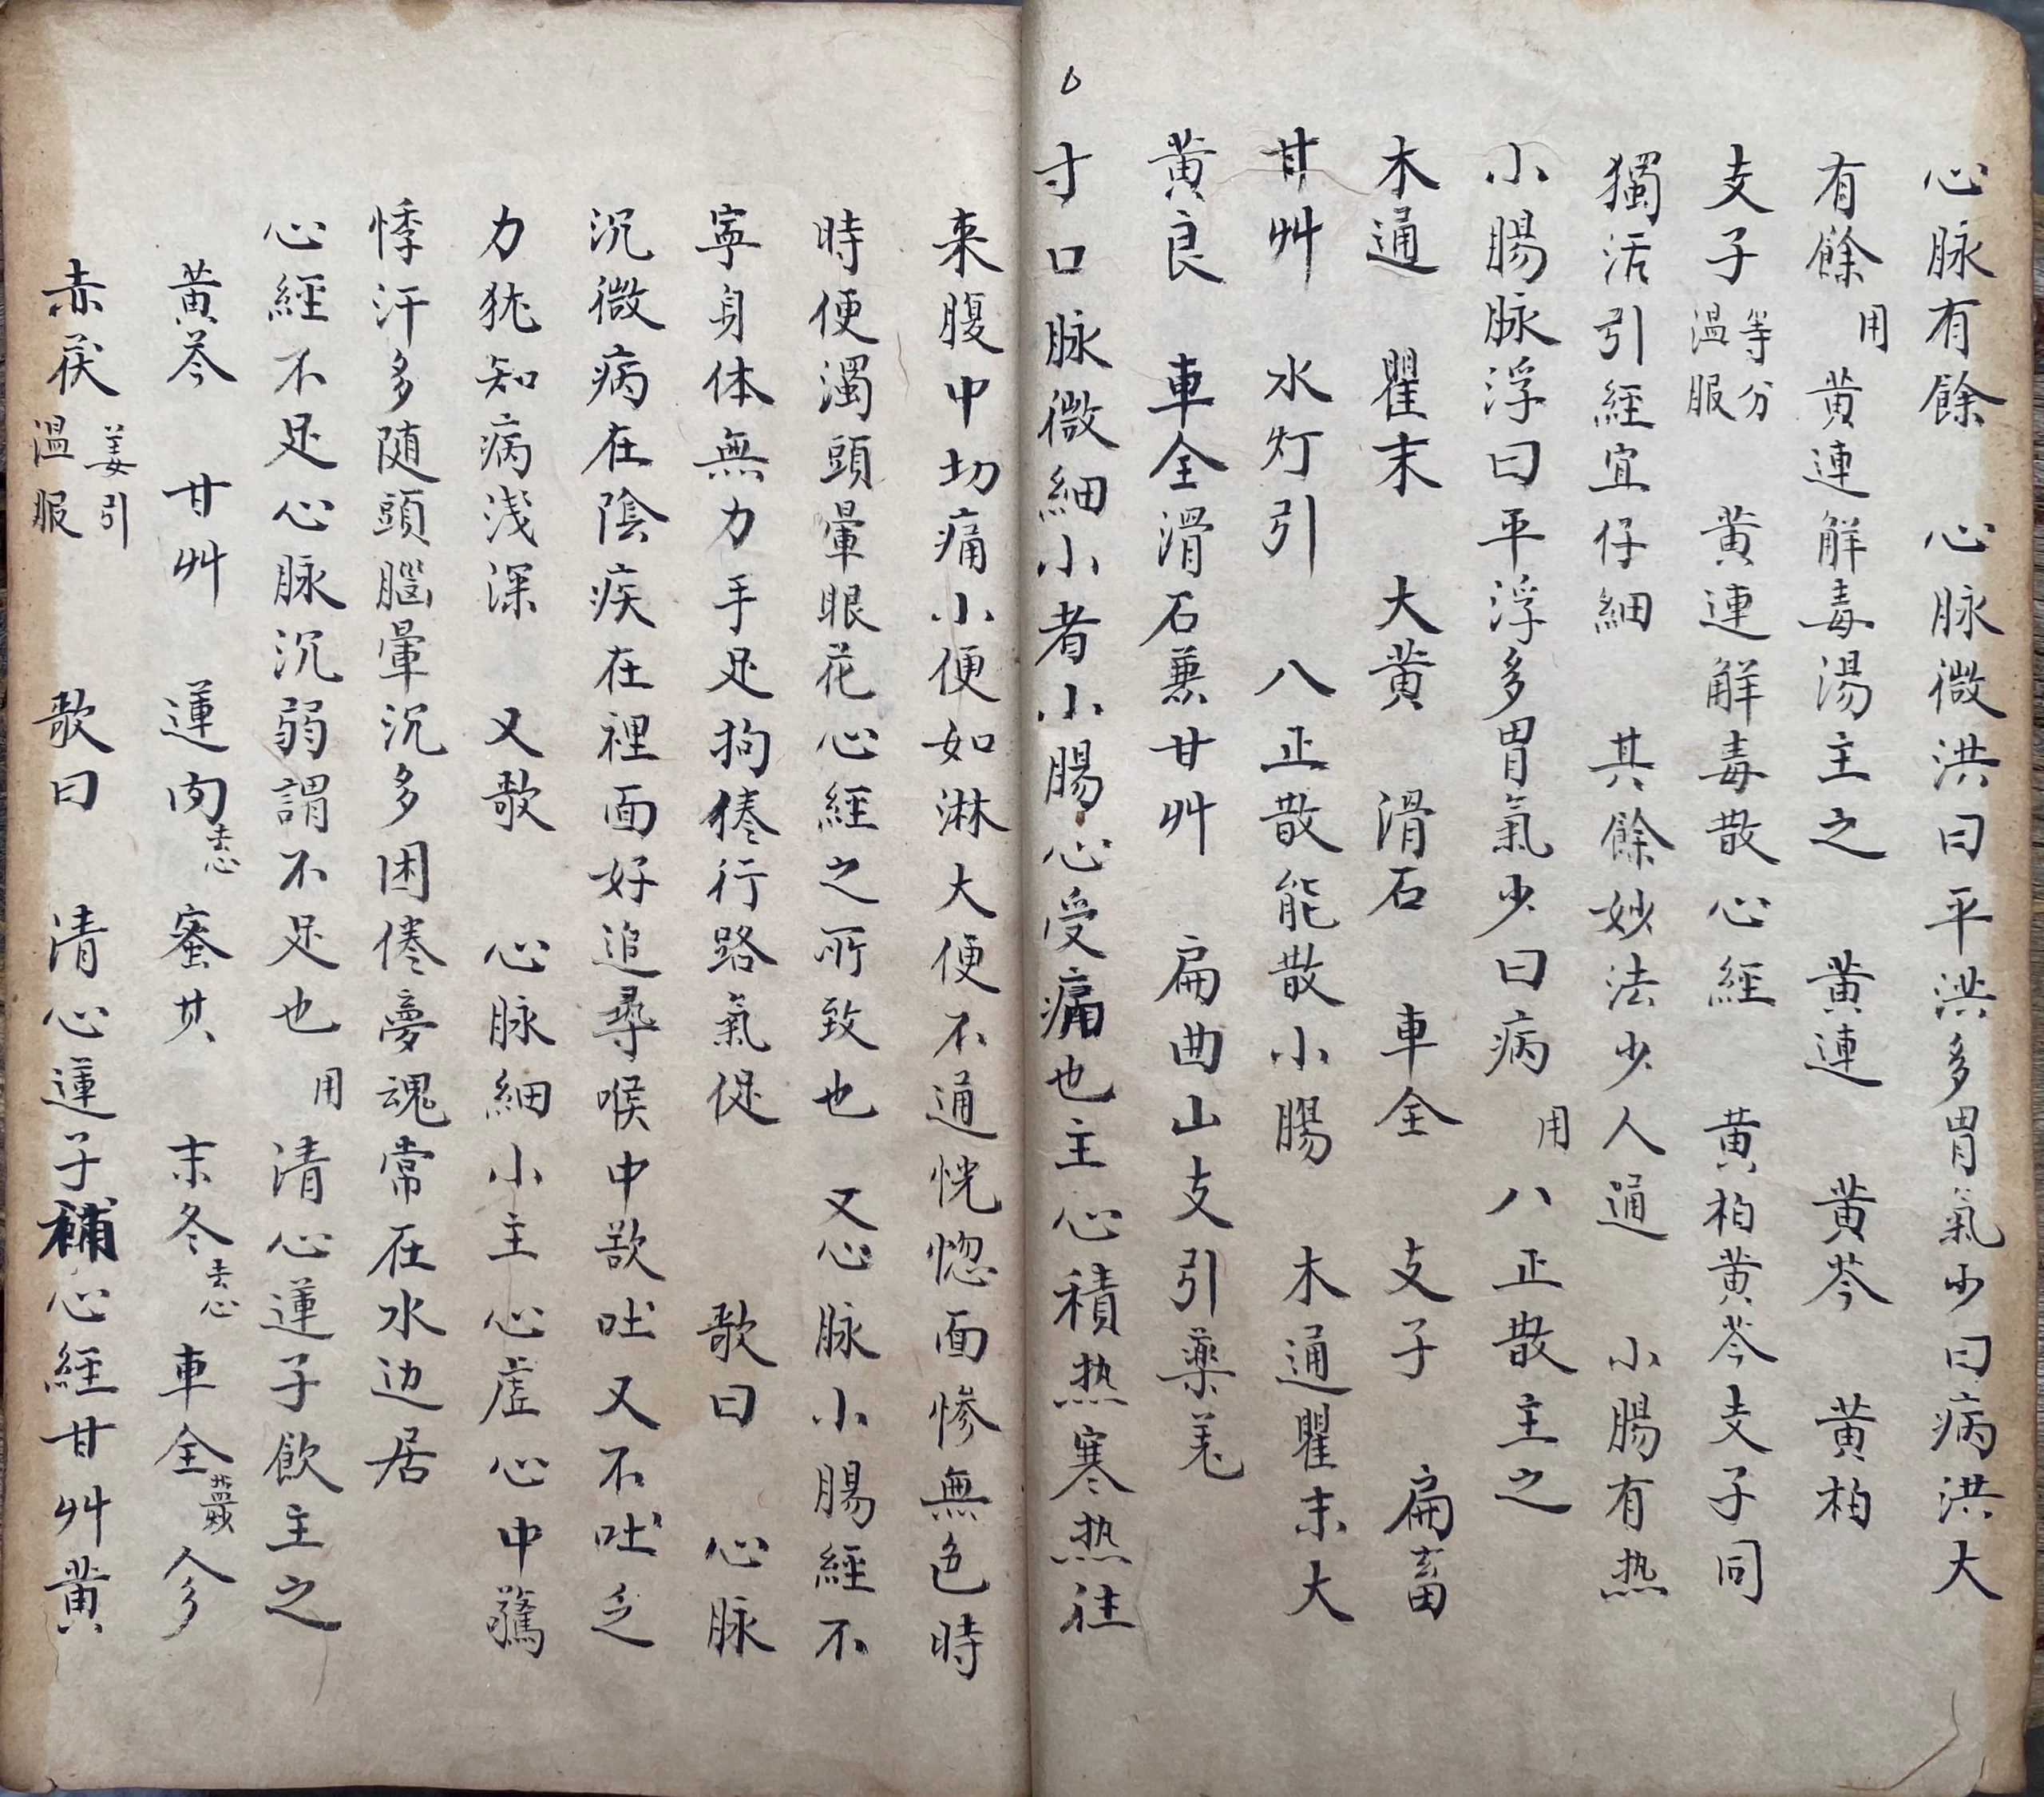 心脉有餘　心脉微洪曰平洪多胃氣少曰病洪大
有餘　用　黄連解毒湯主之　黄連　黄芩　黄柏
支子　等分温服　黄連解毒散心經　黄柏黄芩支子同
獨活引經宜仔細　其餘妙法少人通　小腸有热
小腸脉浮曰平浮多胃氣少曰病　用　八正散主之
木通　瞿末　大黄　滑石　車全　支子　扁畜
甘艸　水灯引　八正散能散小腸　木通瞿末大
黄良　車全滑石兼甘艸　扁曲山支引藥羌
寸口脉微細小者小腸心受痛也主心積热寒热往
来腹中切痛小便如淋大便不通恍惚面惨無色時
時便濁頭暈眼花心經之所致也　又心脉小腸經不
寧身体無力手足拘倦行路氣促　歌曰　心脉
沉微病在陰疾在裡面好追尋喉中欲吐又不吐乏
力犹知病浅深　又歌　心脉細小主心虛心中驚
悸汗多随頭腦暈沉多困倦夢魂常在水边居
心經不足心脉沉弱謂不足也　用　清心蓮子飲主之
黄芩　甘艸　蓮肉去心　蜜芪　末冬去心　車全　參
赤茯　姜引温服　歌曰　清心蓮子補心經甘艸黄